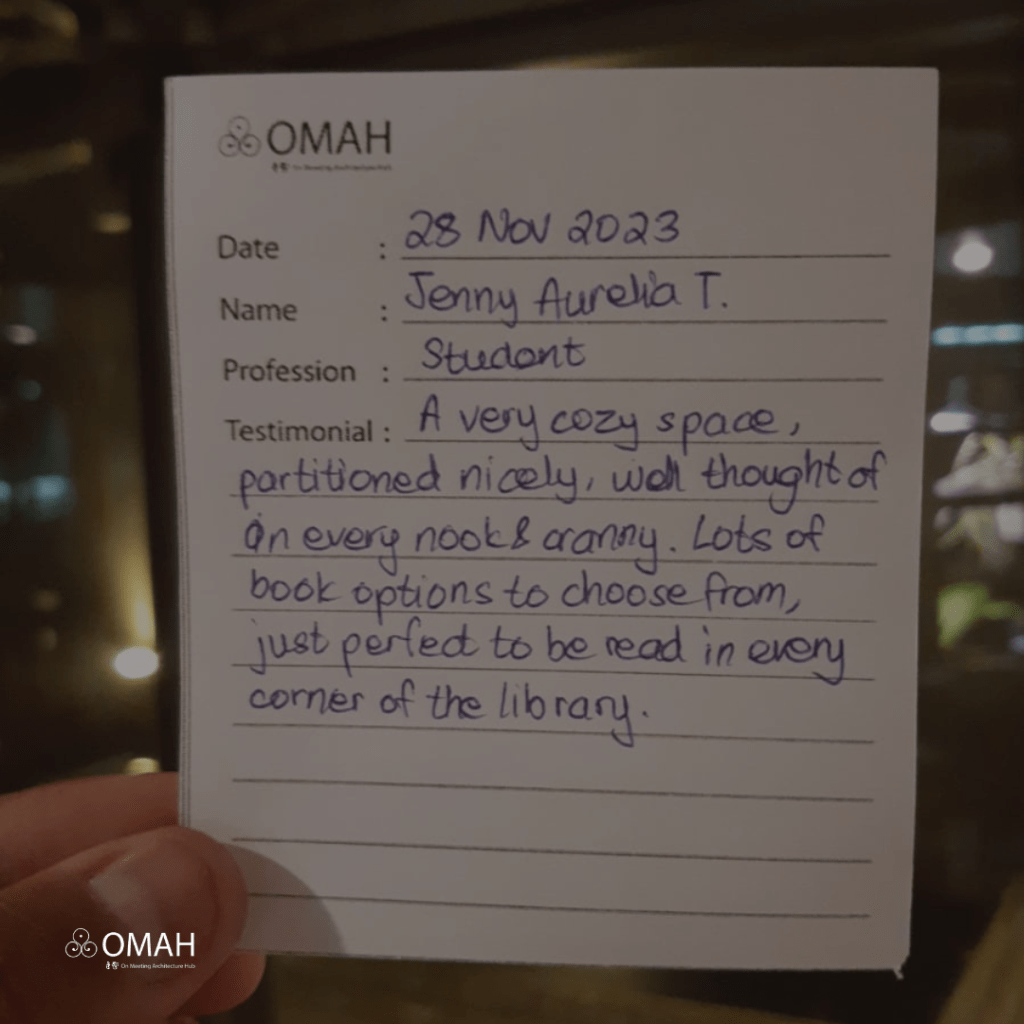 OMAH
On Meeting Architecture Hub
Date : 28 Nov 2023
Name : Jenny Aurelia T.
Profession : Student
Testimonial : A very cozy space,
partitioned nicely, well thought of
on every nook & cranny. Lots of
book options to choose from,
just perfect to be read in every
corner of the library.
OMAH
On Meeting Architecture Hub